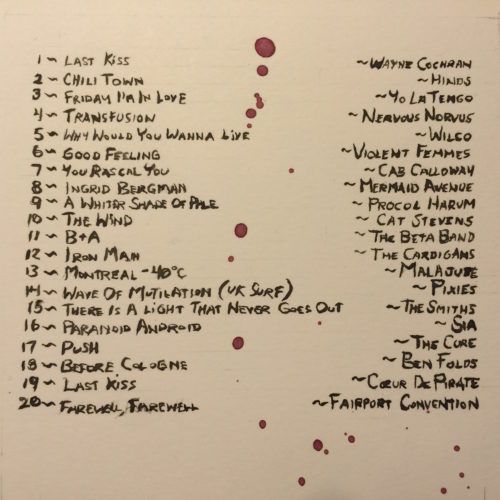 1 ~ LAST KISS ~WAYNE COCHRAN
2 ~ CHILI TOWN ~HINDS
3 ~ FRIDAY I'M IN LOVE ~YO LA TENGO
4 ~ TRANSFUSION ~NERVOUS NORVUS
5 ~ WHY WOULD YOU WANNA LIVE ~WILCO
6 ~ GOOD FEELING ~VIOLENT FEMMES
7 ~ YOU RASCAL YOU ~CAB CALLOWAY
8 ~ INGRID BERGMAN ~MERMAID AVENUE
9 ~ A WHITER SHADE OF PALE ~PROCOL HARUM
10 ~ THE WIND ~CAT STEVENS
11 ~ B+A ~THE BETA BAND
12 ~ IRON MAN ~THE CARDIGANS
13 ~ MONTREAL -40°C ~MALAJUBE
14 ~ WAVE OF MUTILATION (UK SURF) ~PIXIES
15 ~ THERE IS A LIGHT THAT NEVER GOES OUT ~THE SMITHS
16 ~ PARANOID ANDROID ~SIA
17 ~ PUSH ~THE CURE
18 ~ BEFORE COLOGNE ~BEN FOLDS
19 ~ LAST KISS ~CŒUR DE PIRATE
20 ~ FAREWELL, FAREWELL ~FAIRPORT CONVENTION